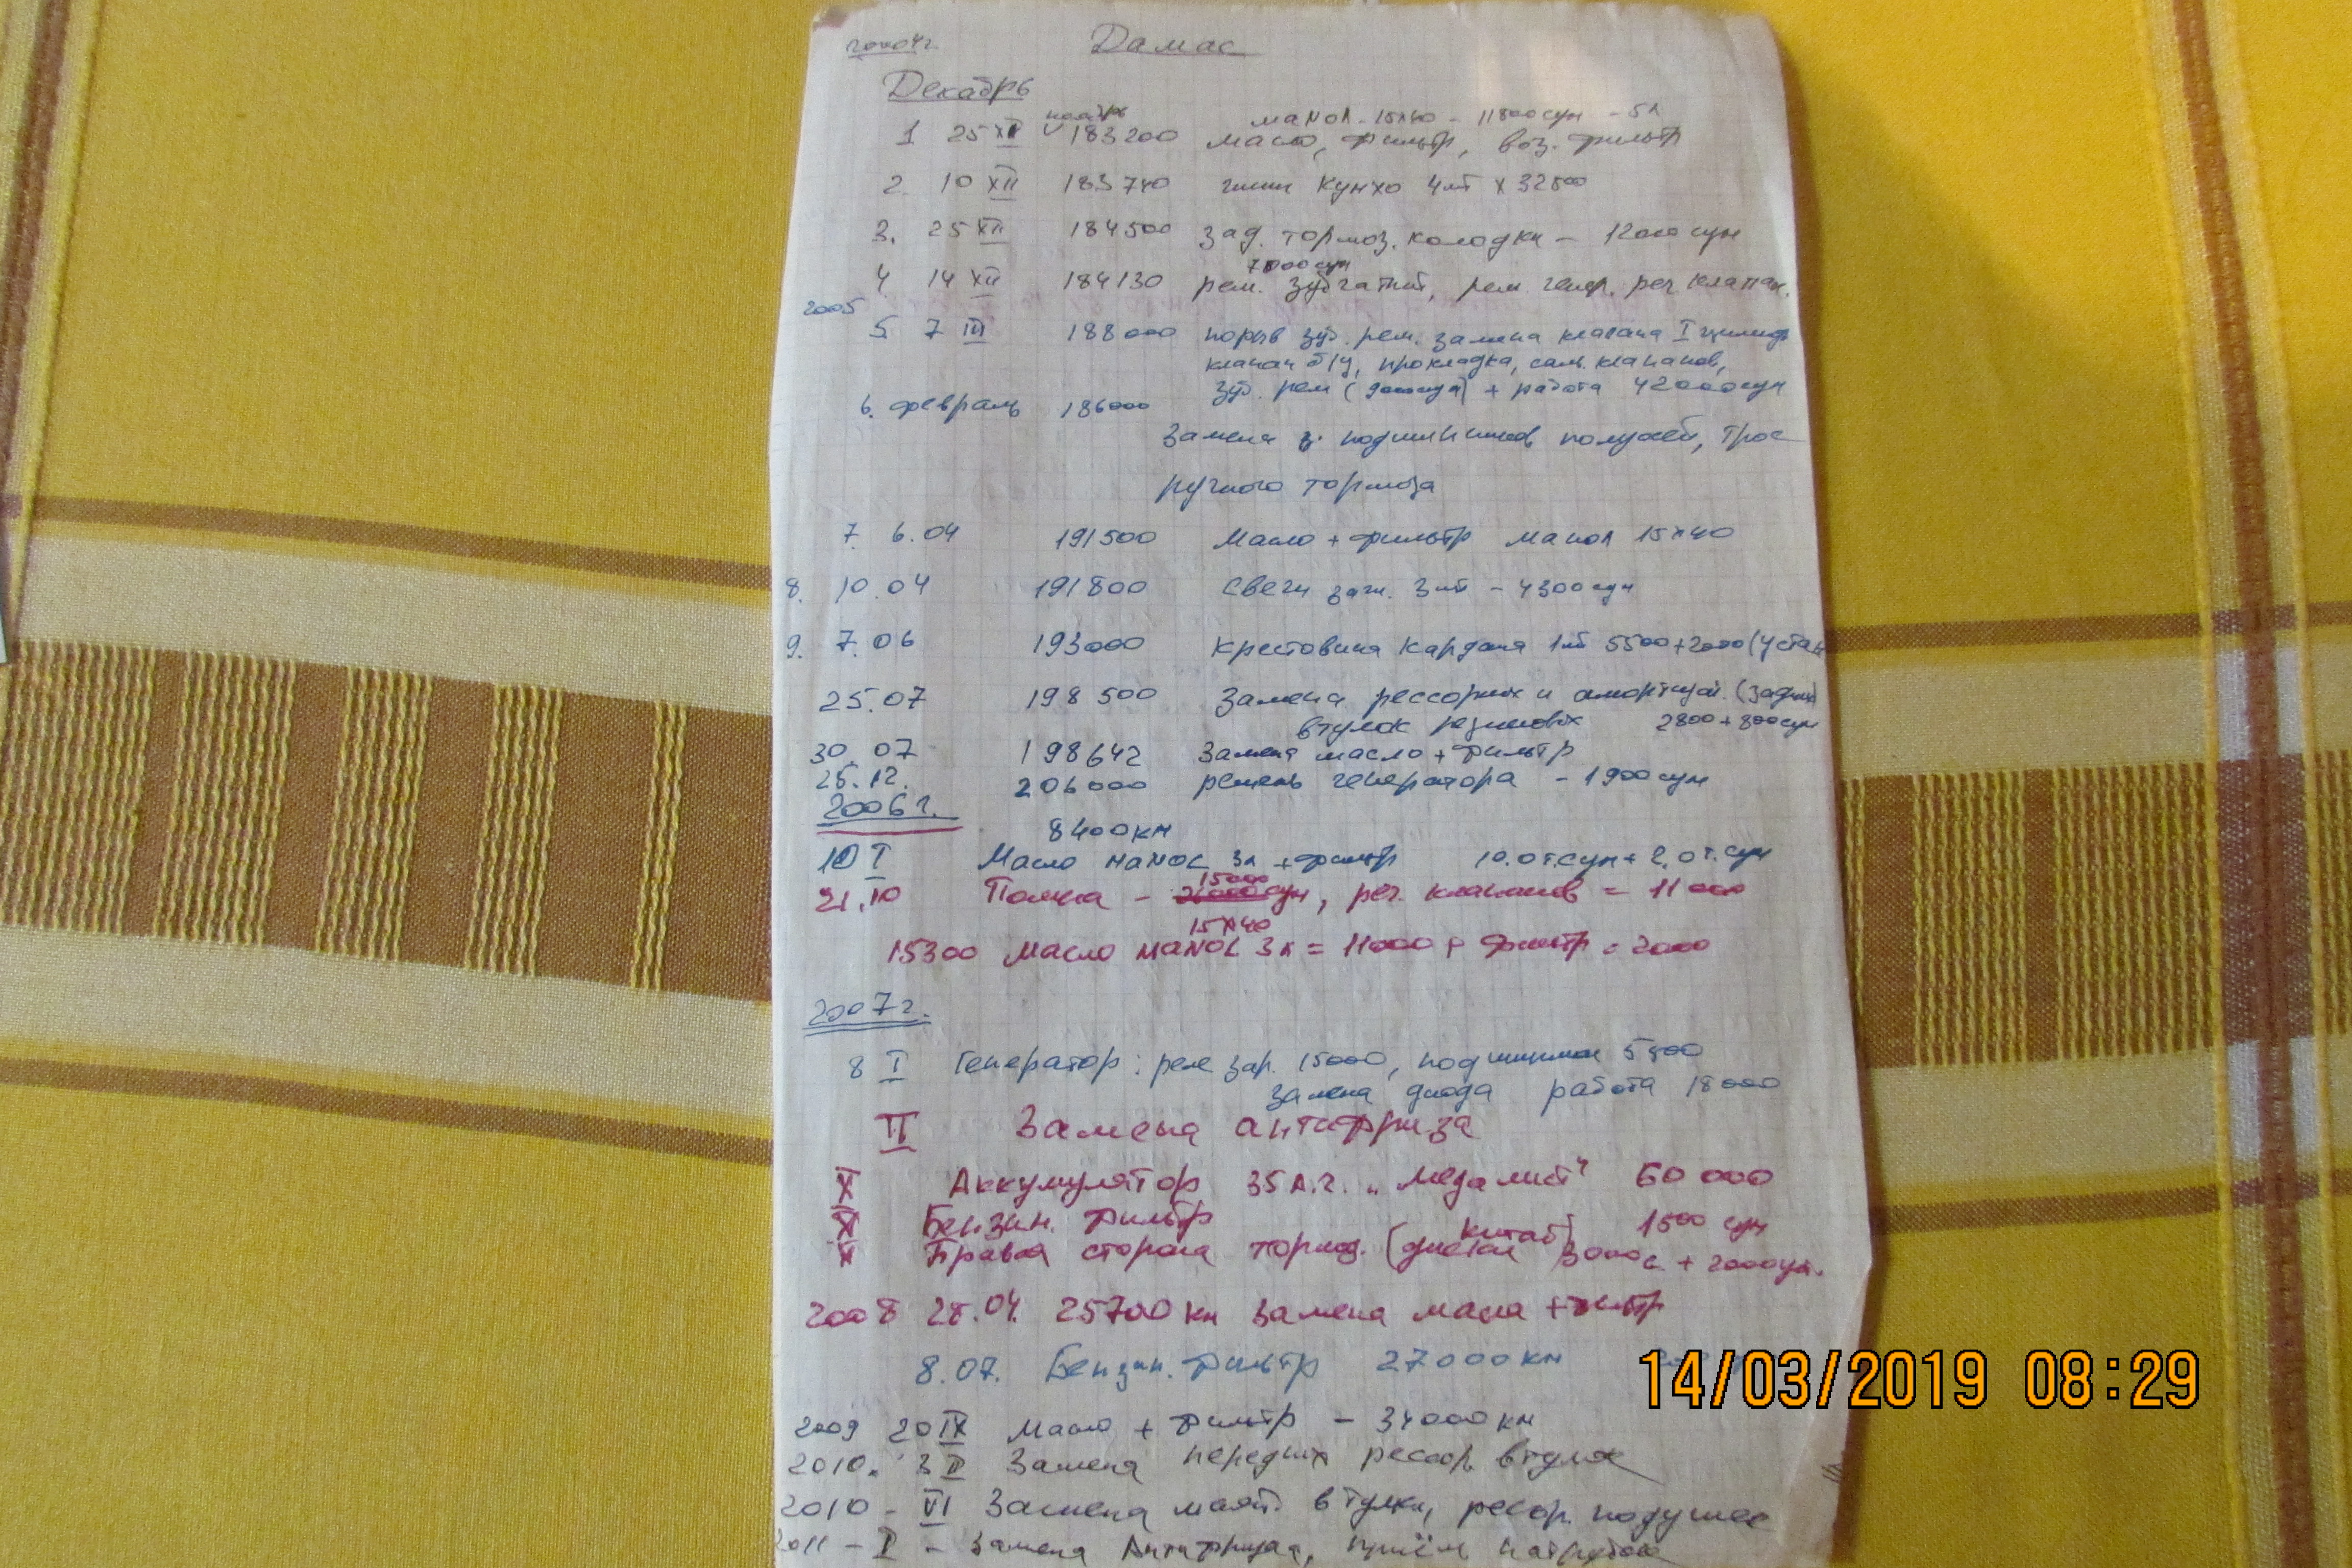 2004г. Дамас
Декабрь
ноябрь маNOL-15х40 - 11800сум - 5л
1 25 XI 183200 масло, фильтр, воз. фильтр
2. 10 XII 183740 шин Кумхо 4шт х 32500
3. 25 XII 184500 зад. тормоз. колодки - 12000 сум
7000сум
4 14 XII 184130 рем. зубчатый, рем генер. рег. клапан.
2005
5. 7 III 188000 порыв зуб. рем. замена клапана I цилинд
клапан б/у, прокладка, саль. клапанов,
зуб. рем ( ) + работа 42000сум
6. февраль 186000
Замена з. подшипников полуосей, трос
ручного тормоза
7. 6.04 191500 Масло + фильтр манол 15х40
8. 10.04 191800 Свечи заж. 3шт - 4300сум
9. 7.06 193000 Крестовина кардана 1шт 5500+2000(устан
25.07 198500 Замена рессорных и амортизат. (задних)
втулок резиновых 2800+800сум
30.07 198642 Замена масло + фильтр
25.12. 206000 ремень генератора - 1900сум
2006г.
8400км
10 I Масло MANOL 3л + фильтр 10.0т.сум + 2.0т.сум
15000
21.10 Помпа - , рег. клапанов = 11000
15х40
15300 Масло MANOL 3л = 11000 + фильтр = 2000
2007г.
8 I Генератор: реле зар. 15000, подшипник 5800
замена диода работа 18000
II Замена антифриза
X Аккумулятор 35А.ч. „Медалист" 60000
XI Бензин. фильтр 1500 сум
китай
Правая сторона тормоз. (диски) 3000с. + 2000ум.
2008 28.04. 25700км замена масла + фильтр
8.07. Бензин. фильтр 27000км
2009 20 IX Масло + фильтр - 34000км
2010. 3 II Замена передних рессор втулок
2010 - VI Замена маят. втулки, рессор. подушек
2011 - I - Замена Антифриза, приём патрубок
14/03/2019 08:29